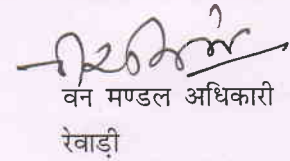 वन मण्डल अधिकारी
रेवाड़ी